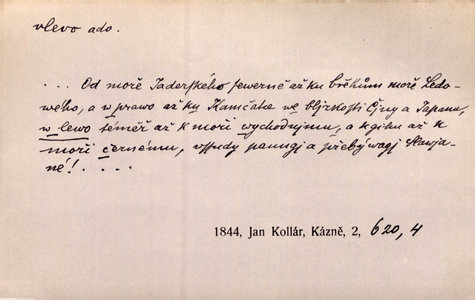 vlevo ado.
. . . Od moře Jaderského sewerně až ku břehům moře Ledo-
wého, a w prawo až ku Kamčatce we blízkosti Číny a Japanu,
w lewo téměř až k moři wýchodnjmu, a k gihu až k
moři černému, wssudy panugj a přebýwagj Slawja-
né! . . . .
1844, Jan Kollár, Kázně, 2, 620, 4